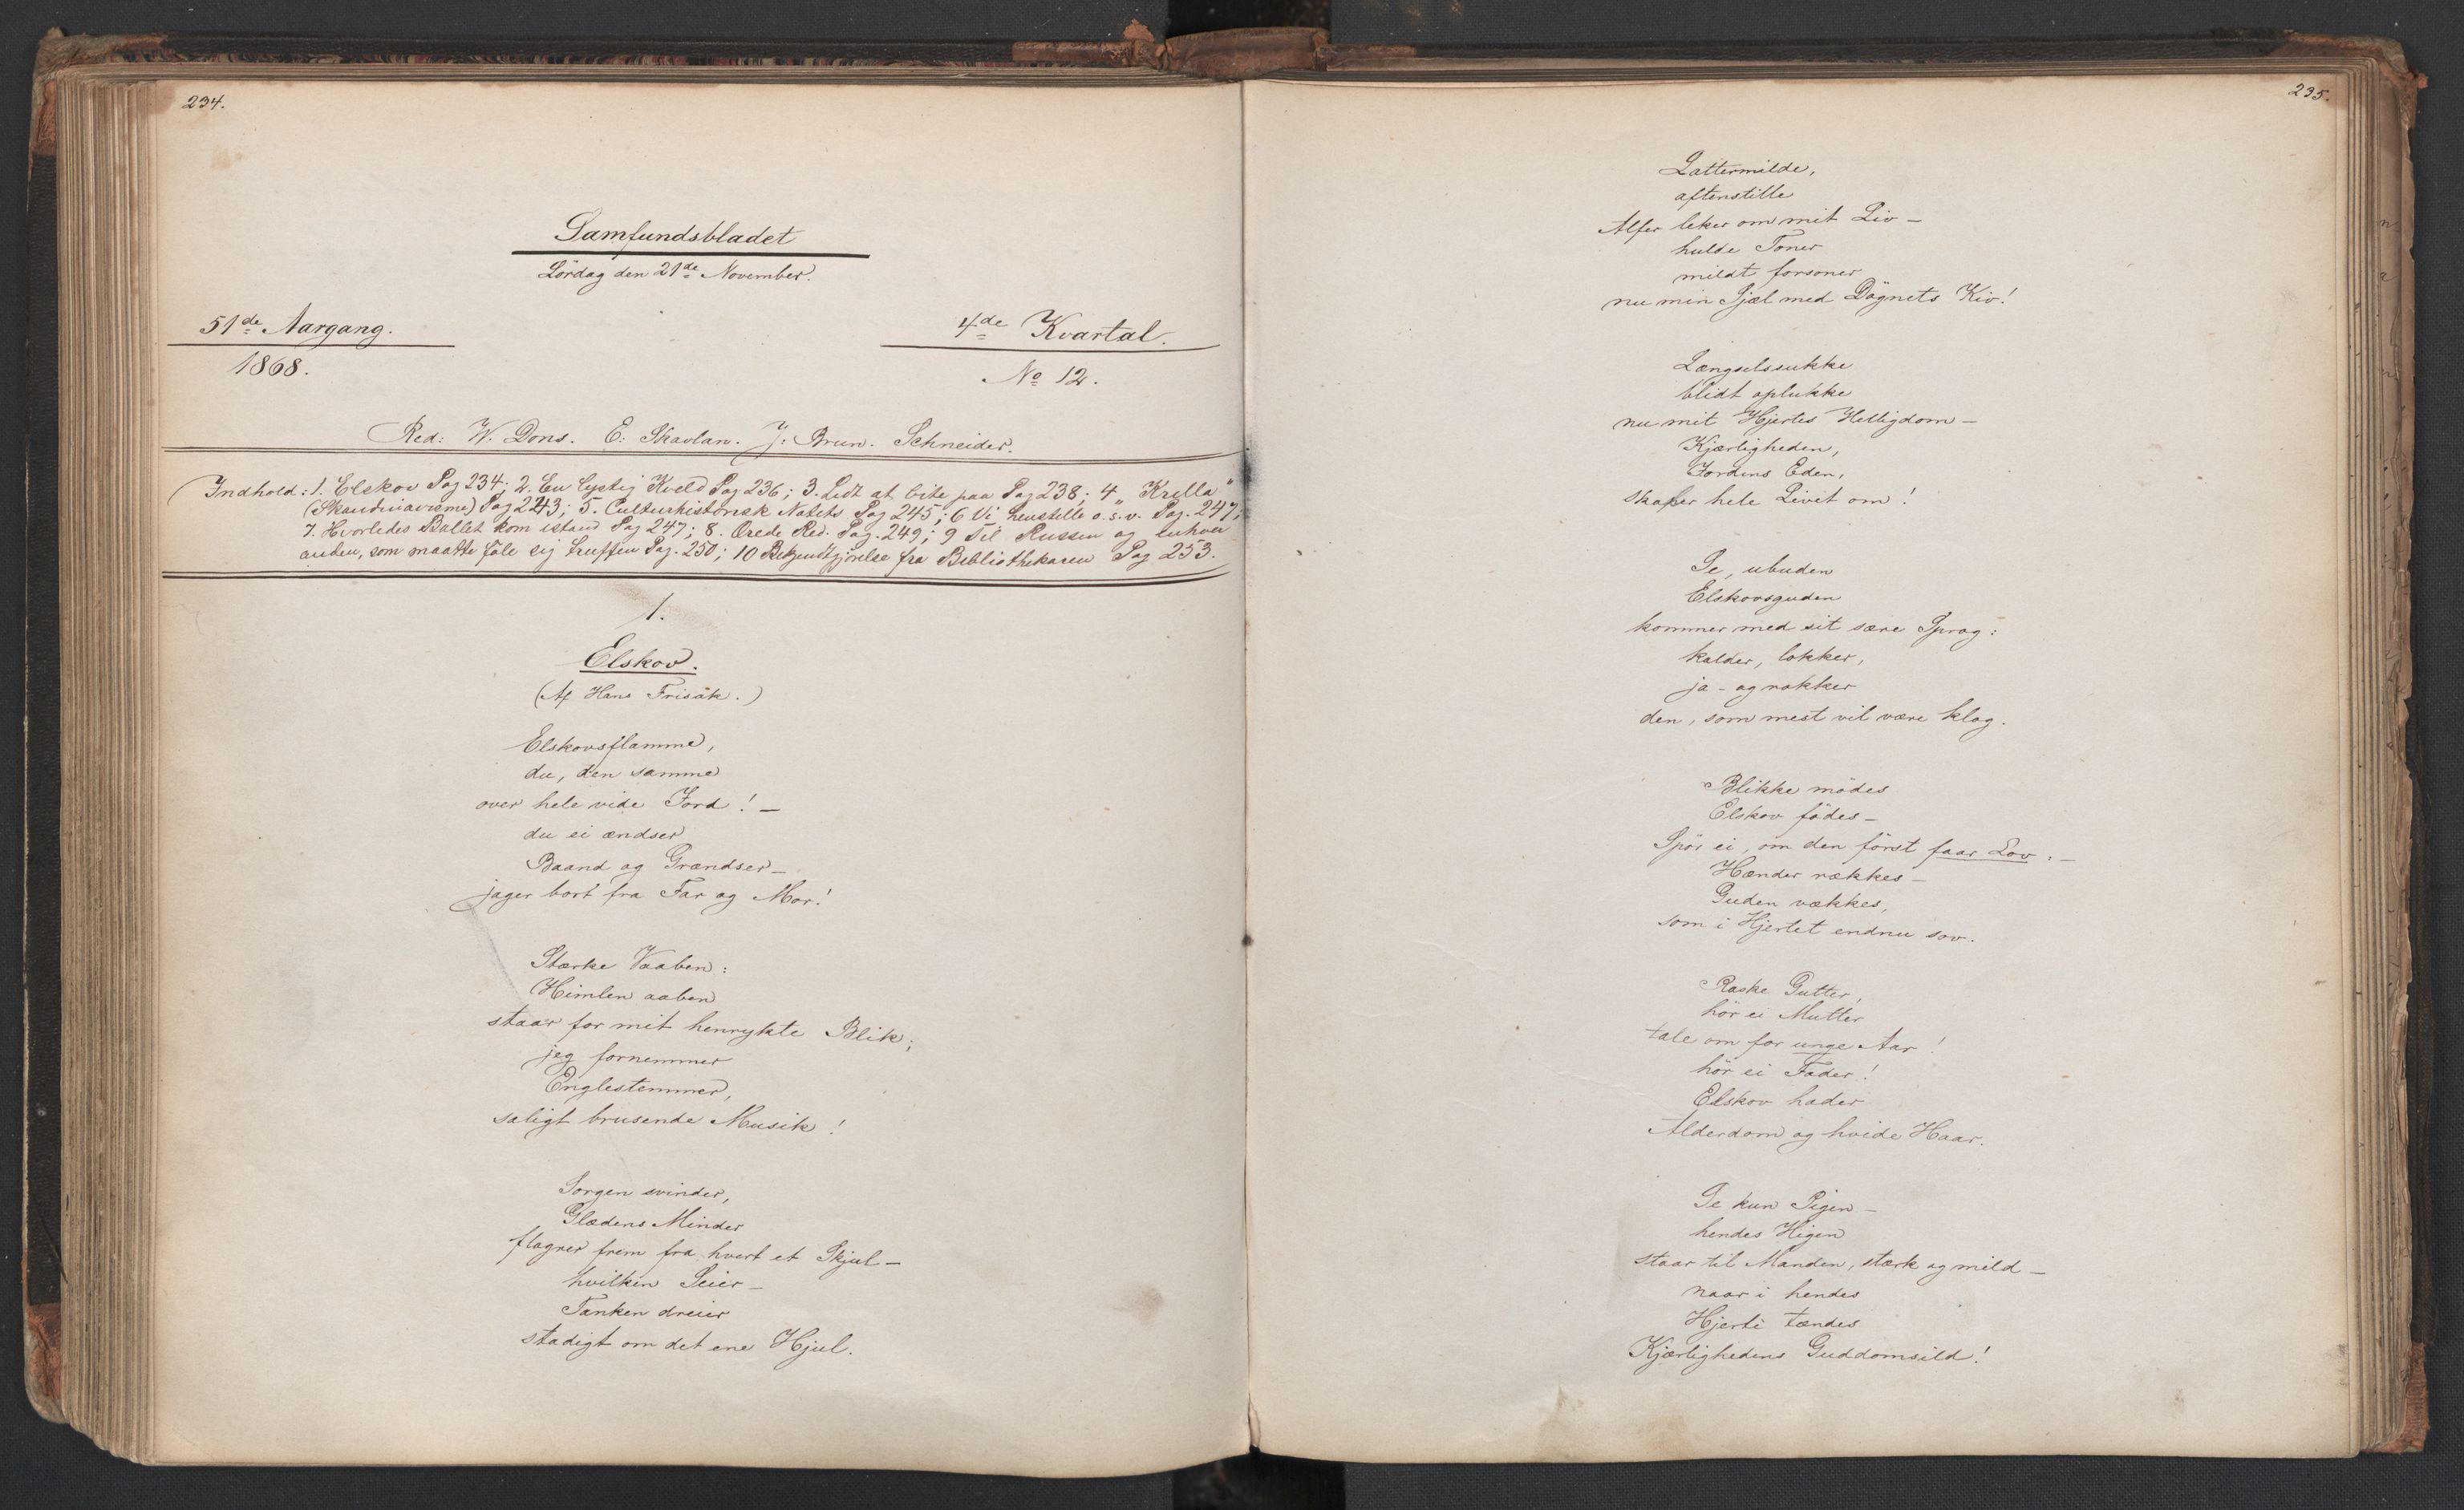 234.
Samfundsbladet
Lördag den 21de November.
51de Aargang.
1868.
4de Kvartal.
No 12.
Red: W. Dons. E. Skavlan. J. Brun. Schneider.
Indhold: 1. Elskov Pag 234; 2. En lystig Kveld Pag 236; 3. Lidt at bite paa Pag 238; 4 „Krilla"
(Skandinavisme) Pag 243; 5. Culturhistorisk Notits Pag 245; 6 Vi henstille o.s.v. Pag. 247;
7. Hvorledes Ballet kom istand Pag 247; 8. Ørede Red. Pag. 249; 9 Til Russen og enhver
anden, som maatte føle sig truffen Pag. 250; 10 Bekjendtgjørelse fra Bibliothekaren Pag 253.
1.
Elskov.
(Af Hans Frisäk.)
Elskovsflamme,
du, den samme
over hele vide Jord! –
du ei ændser
Baand og Grændser –
jager bort fra Far og Mor!
Stærke Vaaben:
Himlen aaben
staar for mit henrykte Blik;
jeg fornemmer
Englestemmer,
saligt brusende Musik!
Sorgen svinder,
Glædens Minder
flagrer frem fra hvert et Skjul –
hvilken Seier –
Tanken dreier
stadigt om det ene Hjul.
235.
Lattermilde,
aftenstille
Alfer leker om mit Liv –
hulde Toner
mildt forsoner
nu min Sjæl med Dögnets Kiv!
Længselssukke
blidt oplukke
nu mit Hjertes Helligdom –
Kjærligheden,
Jordens Eden,
skaper hele Livet om!
Se, ubuden
Elskovsguden
kommer med sit sære Sprog:
kalder, lokker,
ja – og rokker
den, som mest vil være klog.
Blikke mödes
Elskov födes –
Spör ei, om den först faar Lov: –
Hænder rækkes –
Guden vækkes,
som i Hjertet endnu sov.
Raske Gutter,
hör ei Mutter
tale om for unge Aar!
hör ei Fader!
Elskov hader
Alderdom og hvide Haar.
Se kun Pigen –
hendes Higen
staar til Manden, stærk og mild –
naar i hendes
Hjerte tændes
Kjærlighedens Guddomsild!